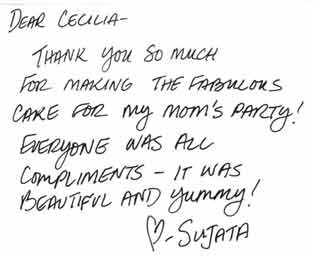 DEAR CECILIA-
THANK YOU SO MUCH
FOR MAKING THE FABULOUS
CAKE FOR MY MOM'S PARTY!
EVERYONE WAS ALL
COMPLIMENTS - IT WAS
BEAUTIFUL AND YUMMY!
♡-SUJATA